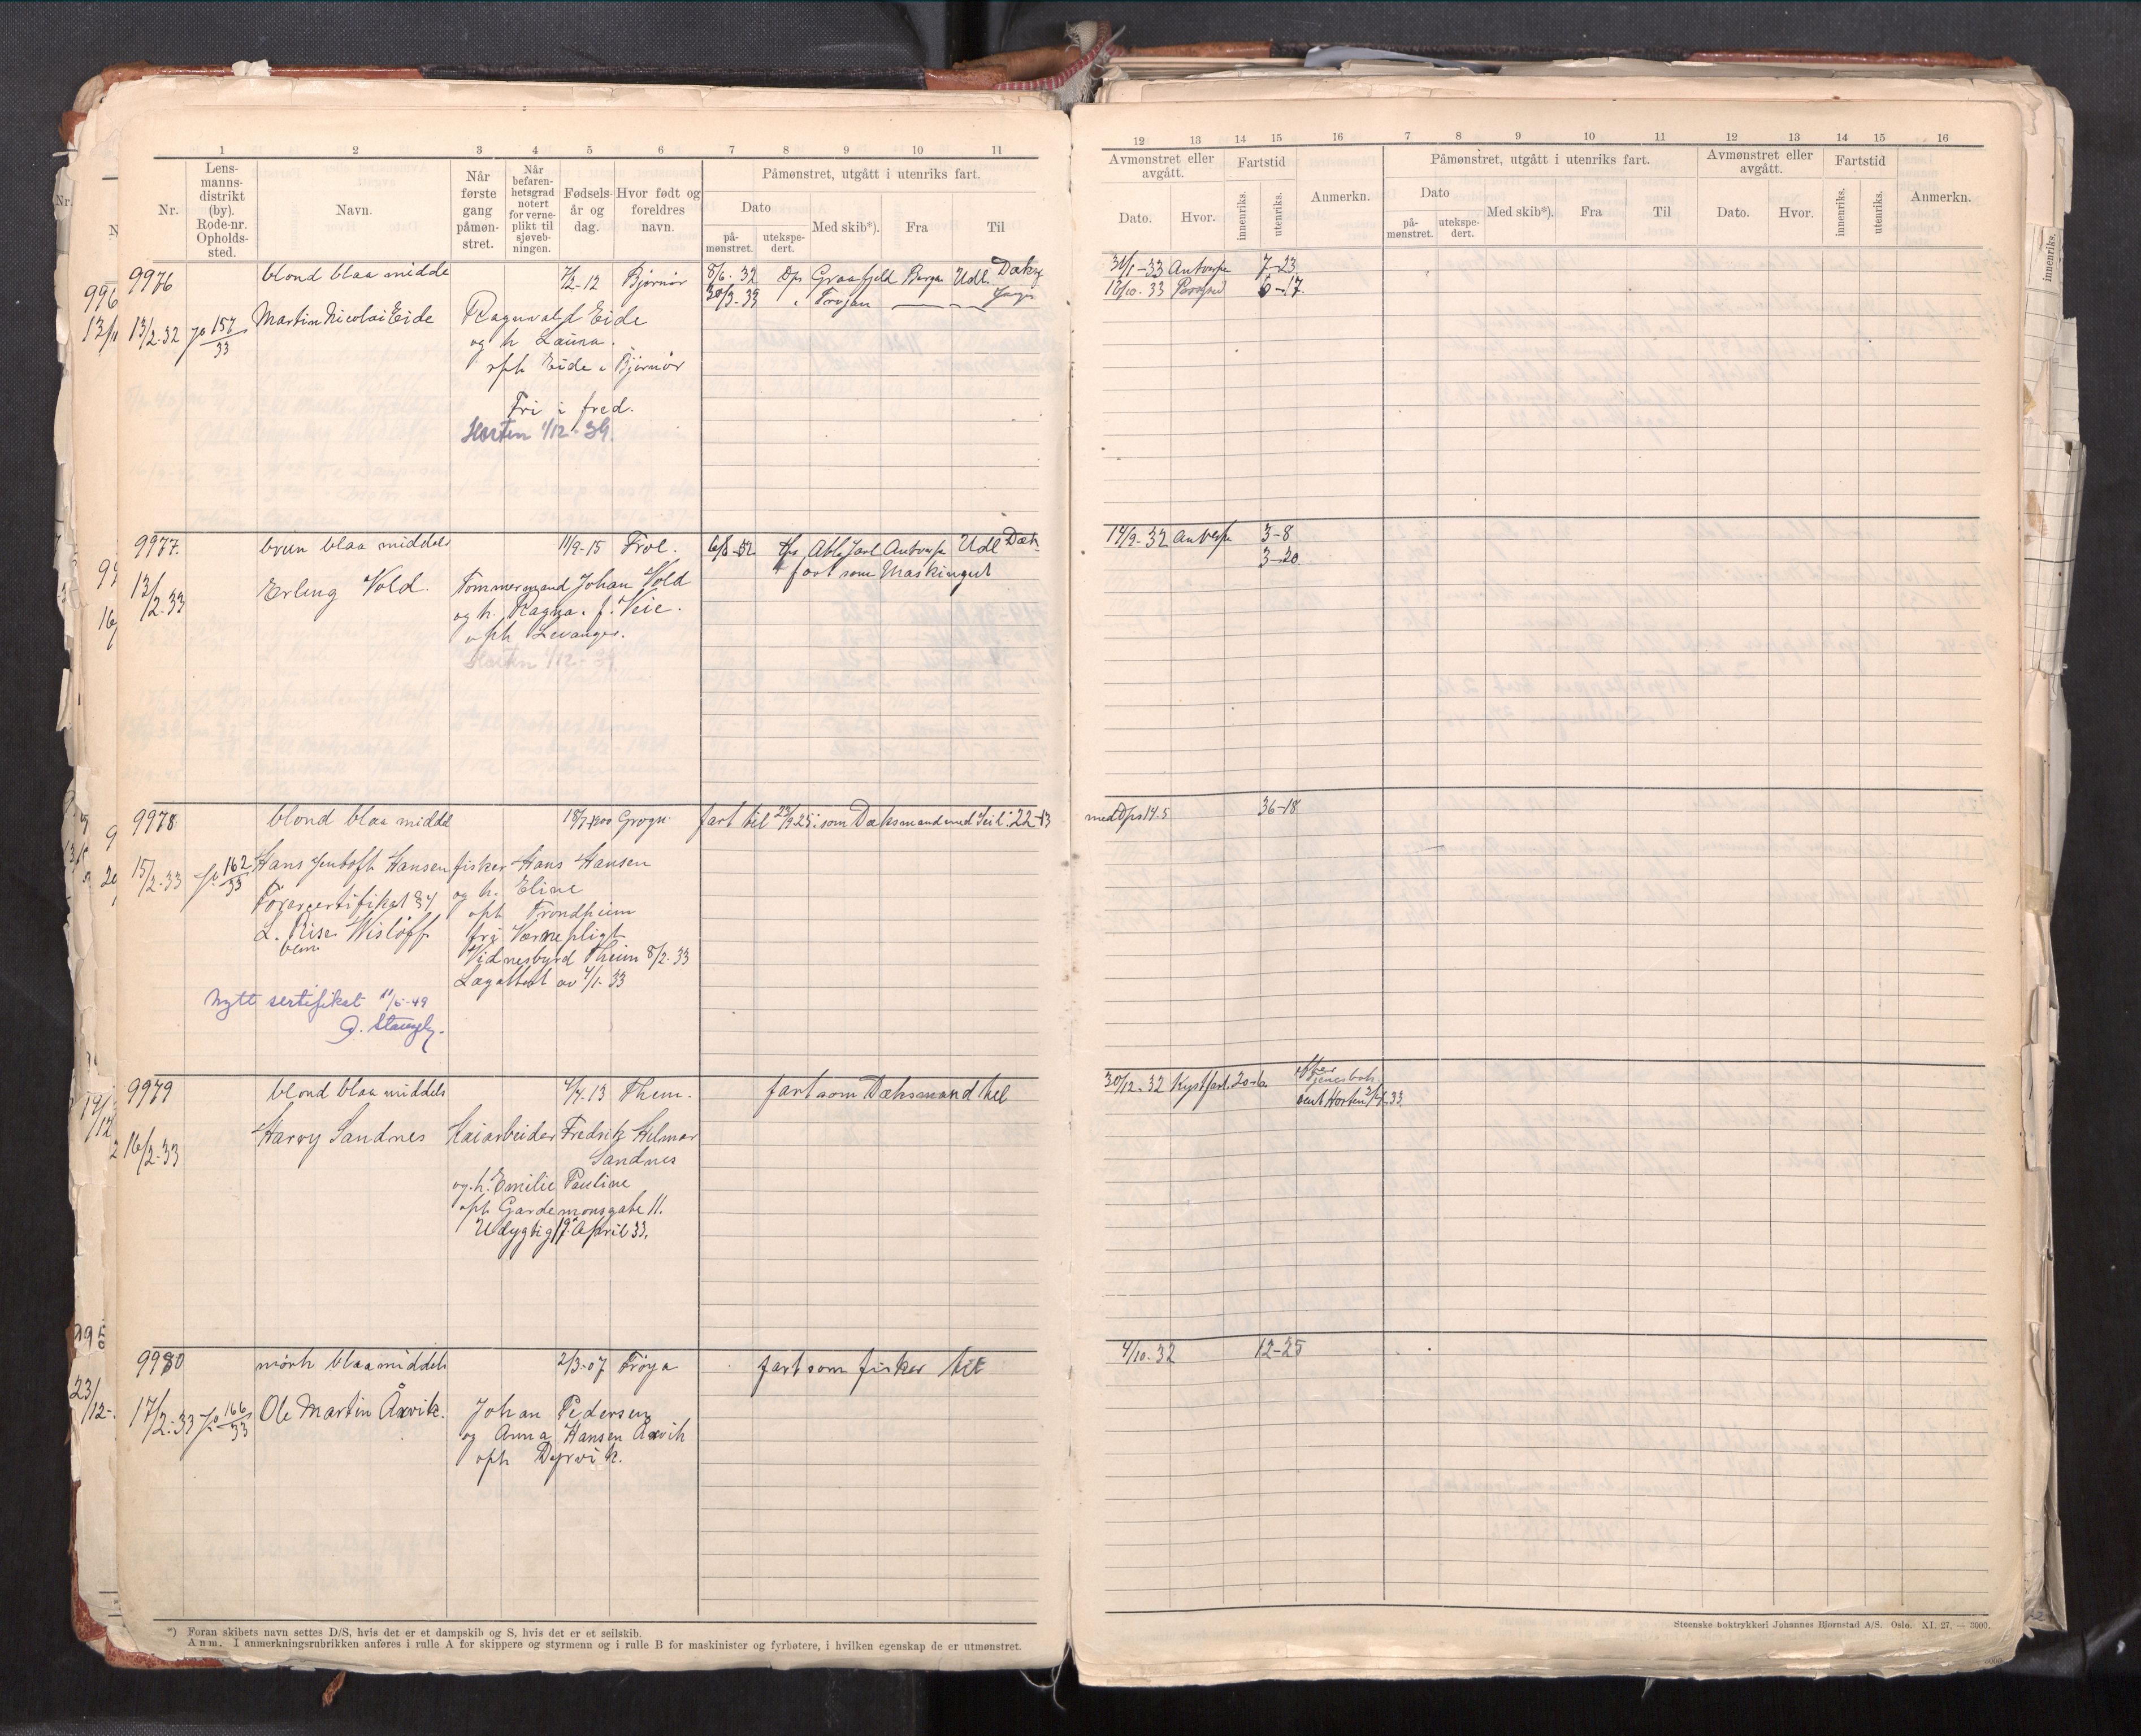 1 2 3 4 5 6 7 8 9 10 11
Nr.
Lens-
manns-
distrikt
(by).
Rode-nr.
Opholds-
sted.
Navn.
Når
første
gang
påmøn-
stret.
Når
befaren-
hetsgrad
notert
for verne-
plikt til
sjøveb-
ningen.
Fødsels-
år og
dag.
Hvor født og
foreldres
navn.
Påmønstret, utgått i utenriks fart.
Dato
på-
mønstret.
utekspe-
dert.
Med skib*).
Fra
Til
9976 blond blaa middel 12 Bjørnør 8/6. 32 Dps Graafjeld Bergen Udl. Dæks
30/3-33 " Trojan
13/2-32 157/33 Martin Nicolai Eide Ragnvald Eide
og h Laura.
oph Eide i Bjørnør
Fri i fred.
Horten 1/12-39.
9977. brun blaa middels 11/9-15 Frol. 6/8-32 Dps Ably Jarl Antverpn Udl Dæk
fart som Maskingut
13/2.33 Erling Vold. Tømmermand Johan Vold
og h. Ragna. f. Veie.
oph Levanger.
Horten 1/12-39.
9978 blond blaa middel 18/7-1900 Grogn. fart til 23/9.25. som Dæksmand med Seil. 22-13
15/2-33 162/33 Hans Jentoft Hansen fisker Hans Hansen
Førercertifikat 84 og h. Eline
L. Rise Wisløff oph Trondheim
fri Værnepligt
Vidnesbyrd Theim 8/2.33
Lægattest av 4/1.33
Nytt sertifikat 11/5-49
9979 blond blaa middels 4/4.13 Them. fart som Dæksmand til
16/2-33 Harry Sandnes Kaiarbeider Fredrik Hilmar
Sandnes
og h. Emilie Pauline
oph Gardemonsgate 11.
Udygtig 19 April 33.
9980 mørk blaa middels 2/3-07 Frøya fart som fisker til
17/2-33 166/33 Ole Martin Årvik. Johan Pedersen
og Anna Hansen Årvik
oph Dyrvik.
*) Foran skibets navn settes D/S, hvis det er et dampskib og S, hvis det er et seilskib.
Anm. I anmerkningsrubrikken anføres i rulle A for skippere og styrmenn og i rulle B for maskinister og fyrbøtere, i hvilken egenskap de er utmønstret.
12 13 14 15 16 7 8 9 10 11 12 13 14 15 16
Avmønstret eller
avgått.
Dato.
Hvor.
Fartstid
innenriks.
utenriks.
Anmerkn.
Påmønstret, utgått i utenriks fart.
Dato
på-
mønstret.
utekspe-
dert.
Med skib*).
Fra
Til
Avmønstret eller
avgått.
Dato.
Hvor.
Fartstid
innenriks.
utenriks.
Anmerkn.
31/1-33 Antverpn 7-23
12/10-33 6-17.
14/9-32 Antverpn 3-8
3-20
med Dps 14.5 36-18
30/12-32 Kystfart. 20-6 efter
Tjenesbok
sent Horten 33
4/10-32 12-25
Steenske boktrykkeri Johannes Bjørnstad A/S. Oslo. XI. 27. — 3000.